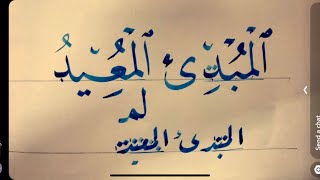 اَلْمُبْدِئُ اَلْمُعِيْدُ
لم
المبدئ المعيد
Send a chat